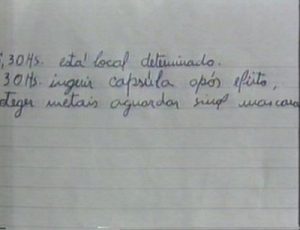 ,30Hs. está local determinado.
30Hs. ingerir capsúla após efeito,
oteger metais aguardar sinal mascara